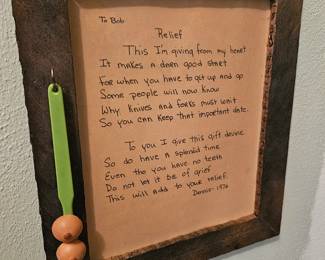 To Bob
Relief
This I'm giving from my heart
It makes a darn good start
For when you have to get up and go
Some people will now know
Why knives and forks must wait
So you can keep that important date.
To you I give this gift device
So do have a splendid time
Even tho you have no teeth
Do not let it be of grief
This will add to your relief.
Dennis - 1976